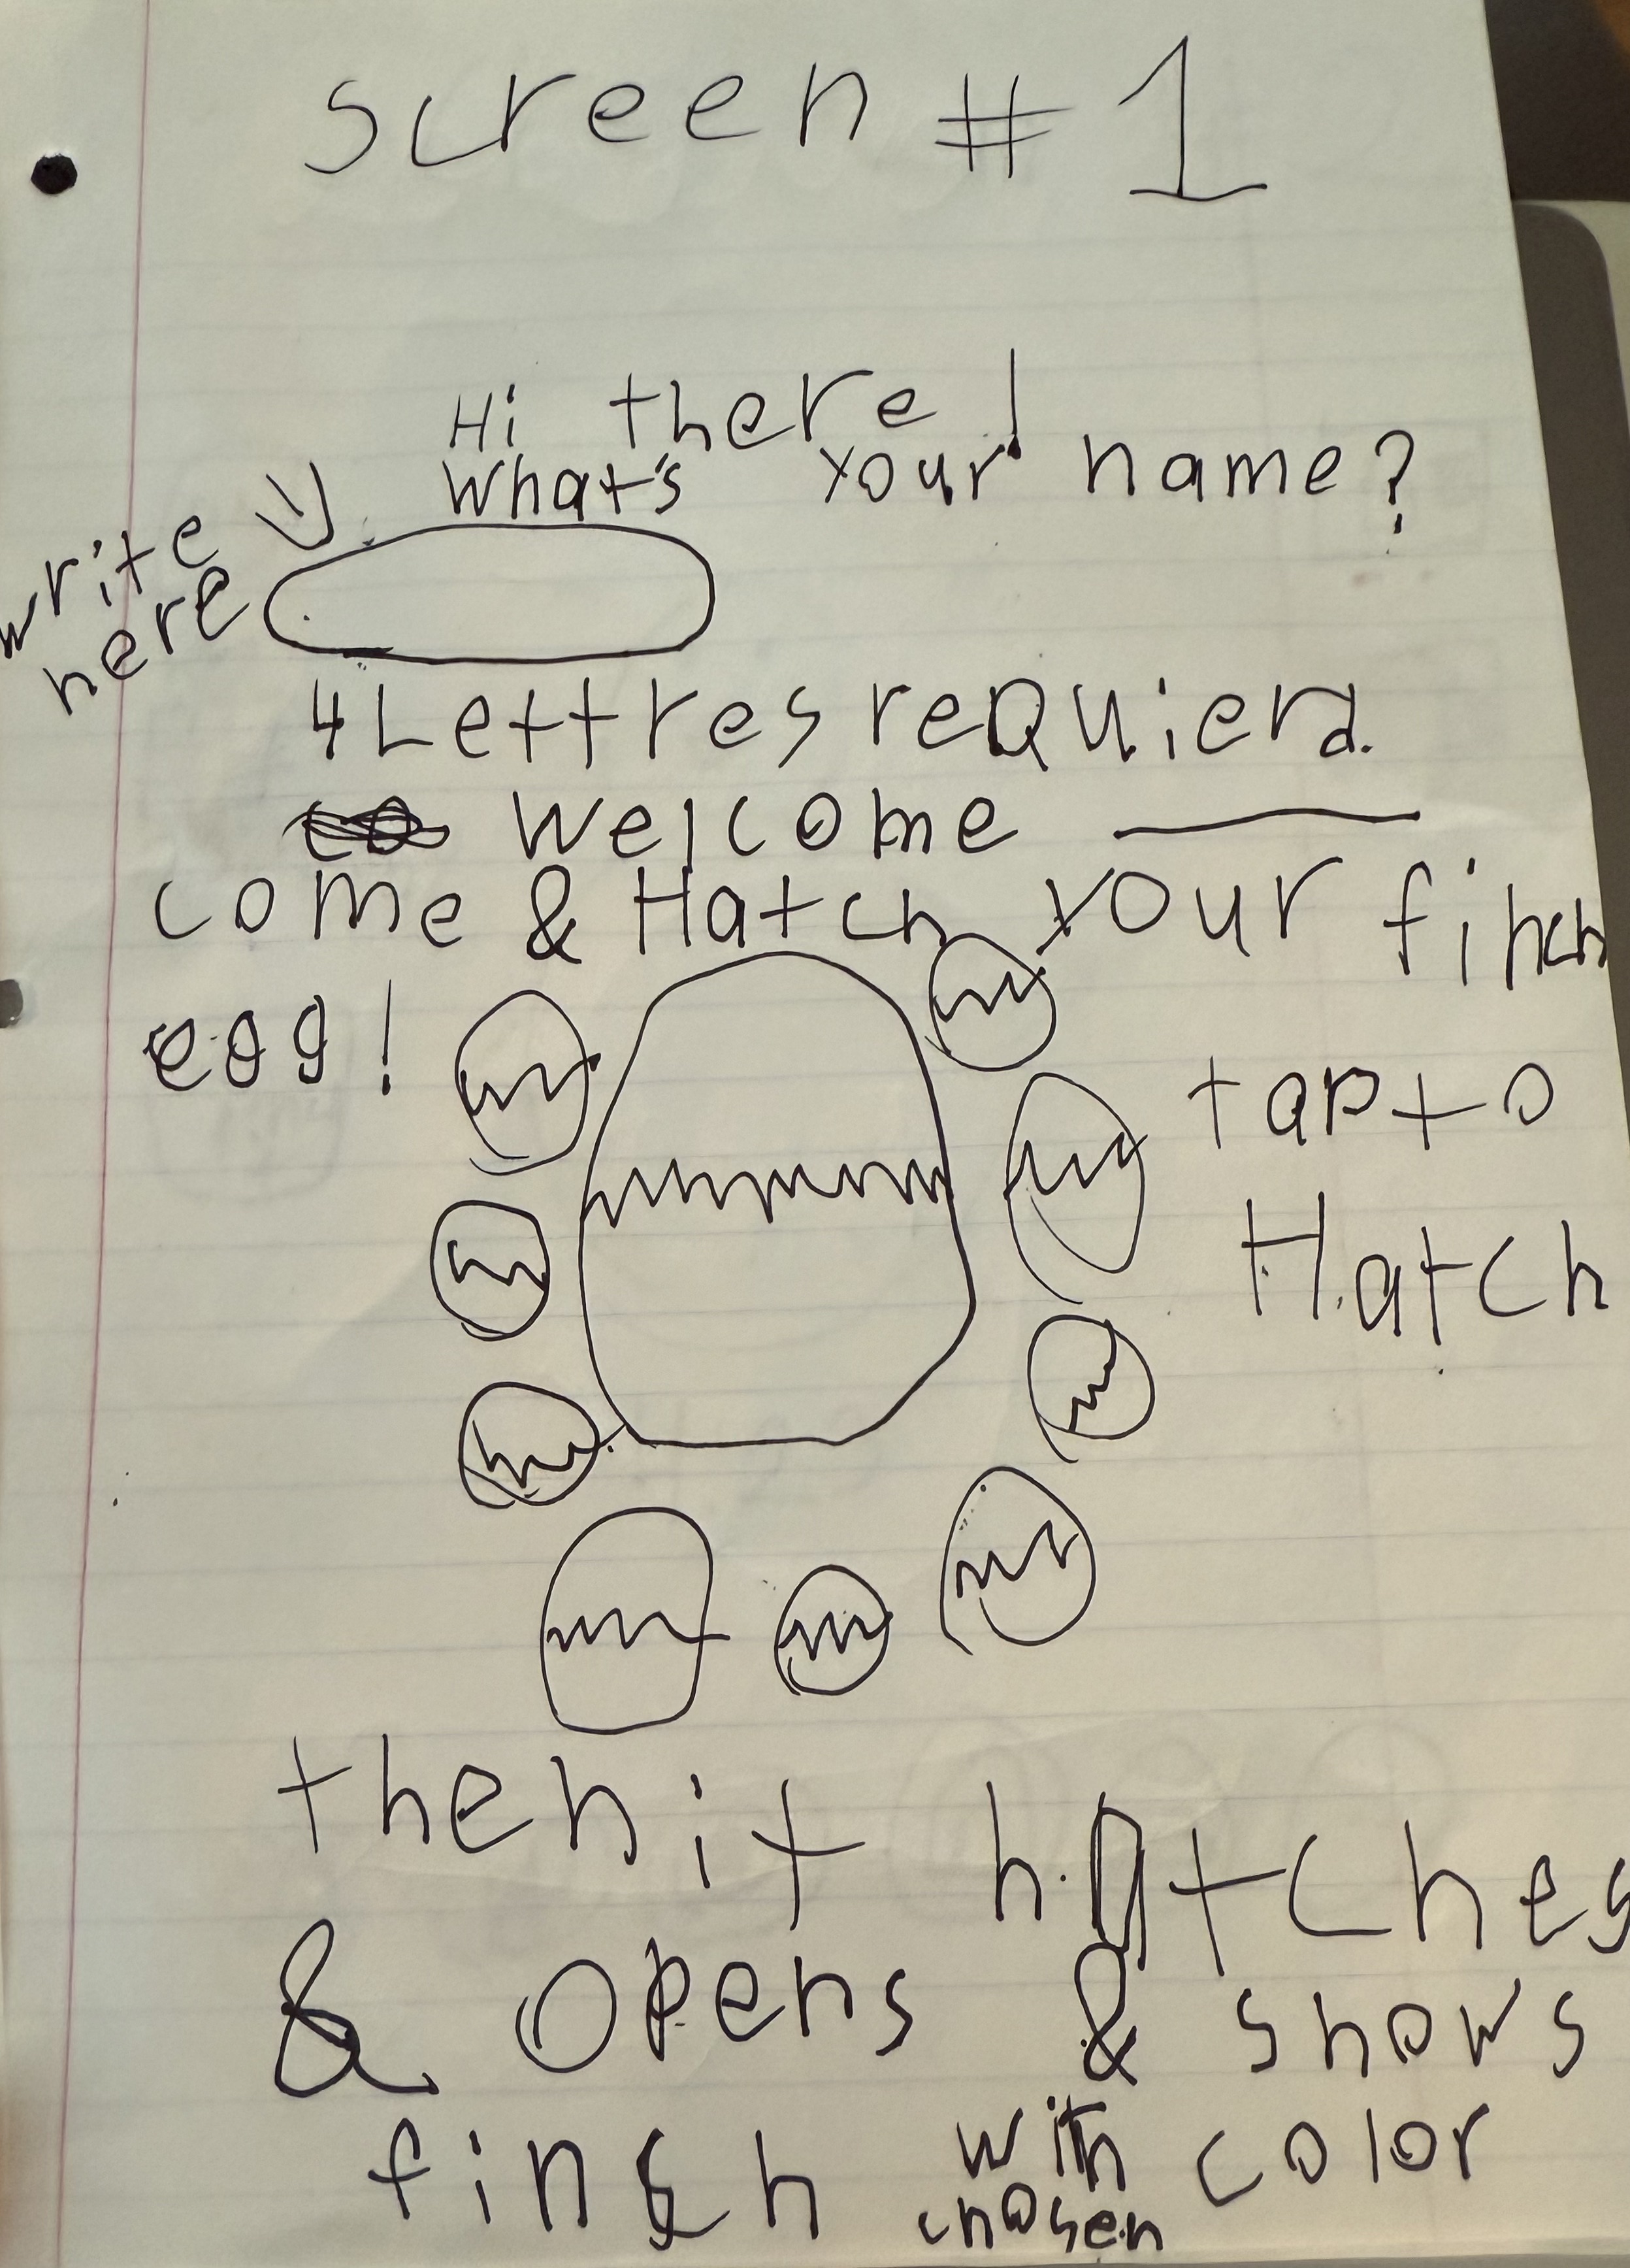 screen #1
Hi there!
What's your name?
write
here
4 Lettres requierd.
Welcome ____
come & Hatch your finch
egg!
tap to
Hatch
then it hatches
& opens & shows
finch with chosen color